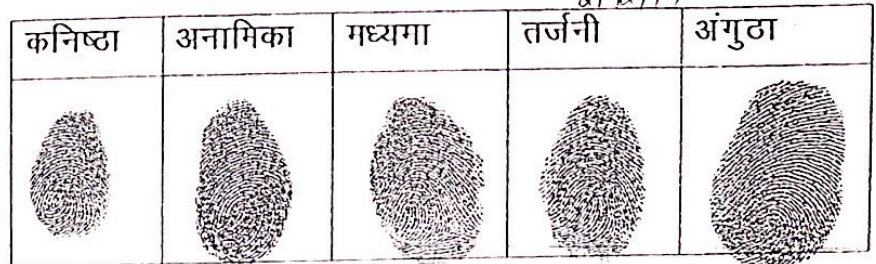 कनिष्ठा अनामिका मध्यमा तर्जनी अंगुठा